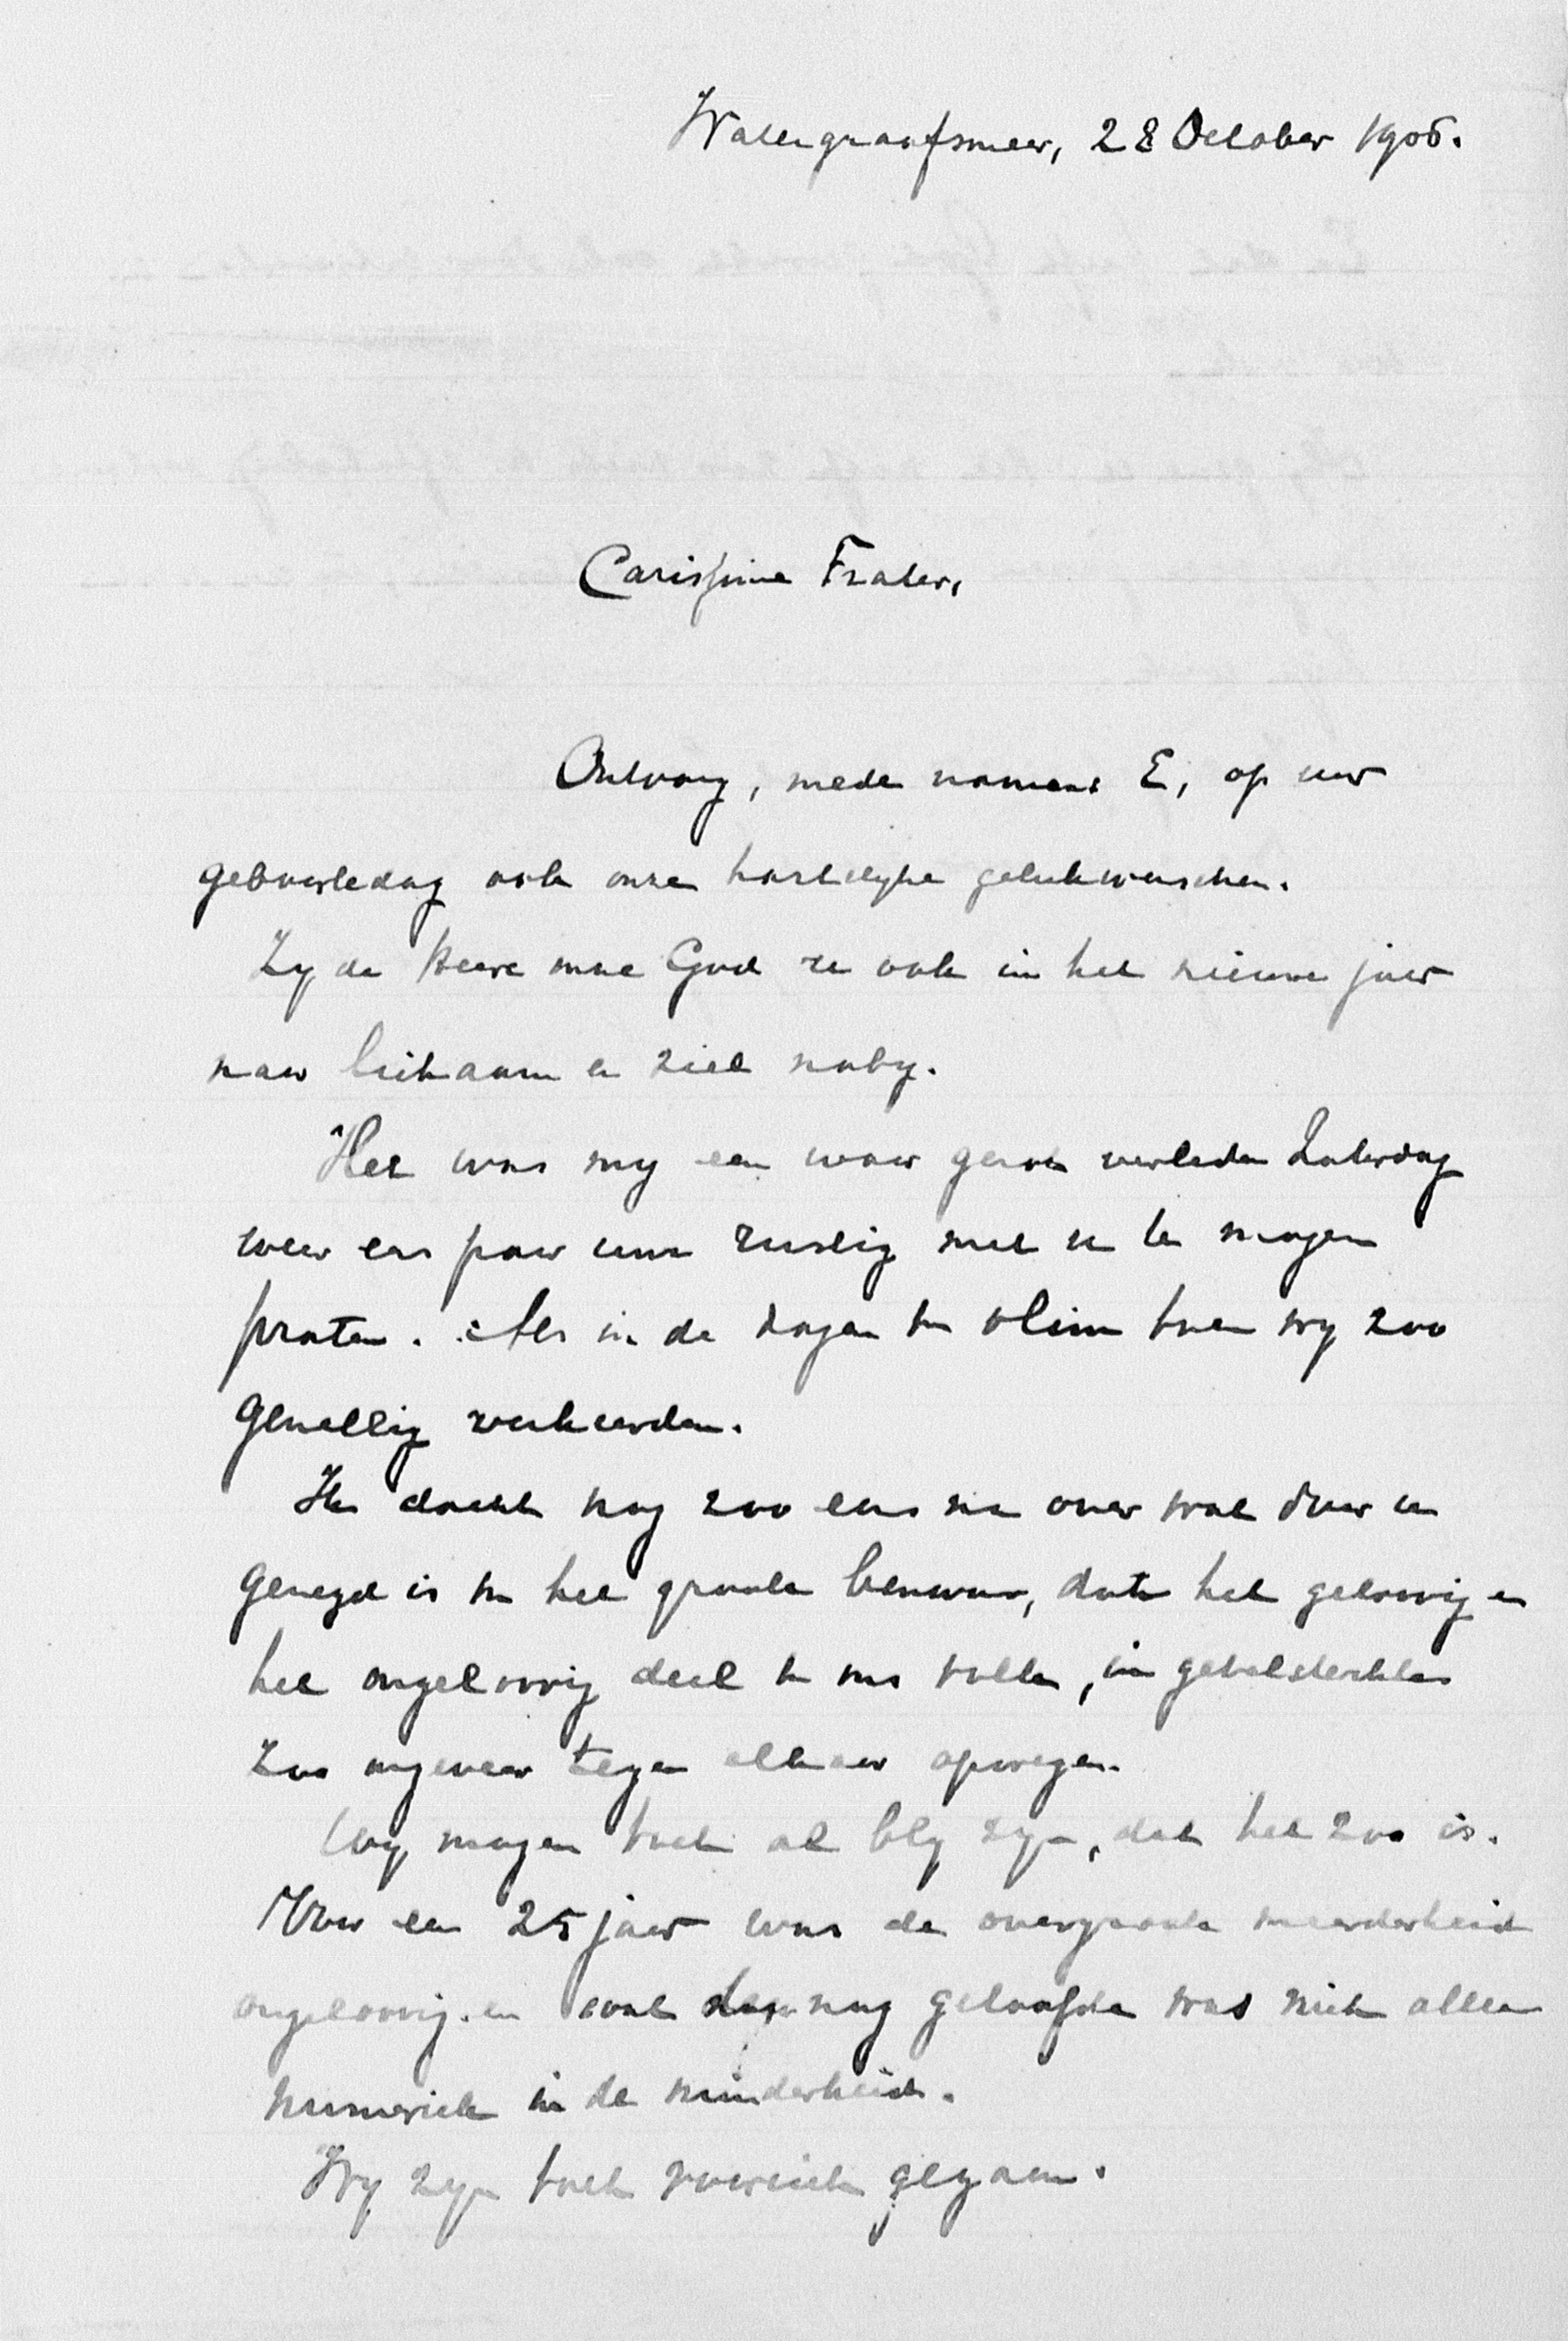 Watergraafsmeer, 28 October 1906.
Carissime Frater,
Ontvang, mede namens E, op uw
geboortedag ook onze hartelyke gelukwenschen.
Zy de Heere onze God u ook in het nieuwe jaar
naar lichaam en ziel naby.
Het was my een waar genot verleden Zaterdag
weer een paar uur rustig met u te mogen
praten. Als in de dagen van olim toen wy zoo
gezellig verkeerden.
Ik dacht nog zoo eens na over wat door u
gezegd is van het groote bezwaar, dat het geloovig en
het ongeloovig deel van ons volk, in getalsterkte
zoo ongeveer tegen elkaar opwegen.
Wy mogen toch al bly zyn, dat het zoo is.
Voor een 25 jaar was de overgroote meerderheid
ongeloovig en wat nog geloofde was niet alleen
numeriek in de minderheid.
Wy zyn toch vooruit gegaan.